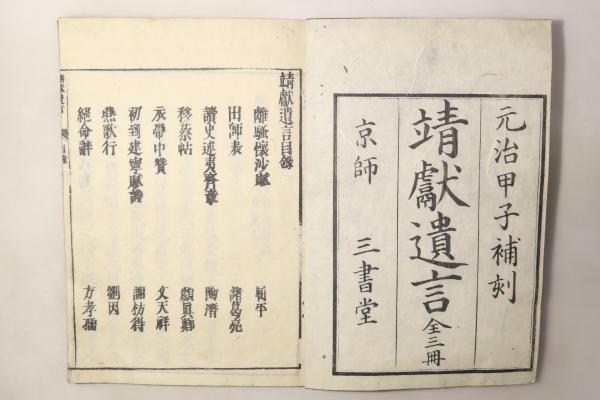 元治甲子補刻
靖獻遺言 全三冊
京師 三書堂
靖獻遺言目錄
離騷懷沙賦 屈平
出師表 諸葛亮
讀史述夷齊章 陶潛
移蔡帖 顏眞卿
衣帶中贊 文天祥
初到建寧賦詩 謝枋得
燕歌行 劉因
絕命辭 方孝孺